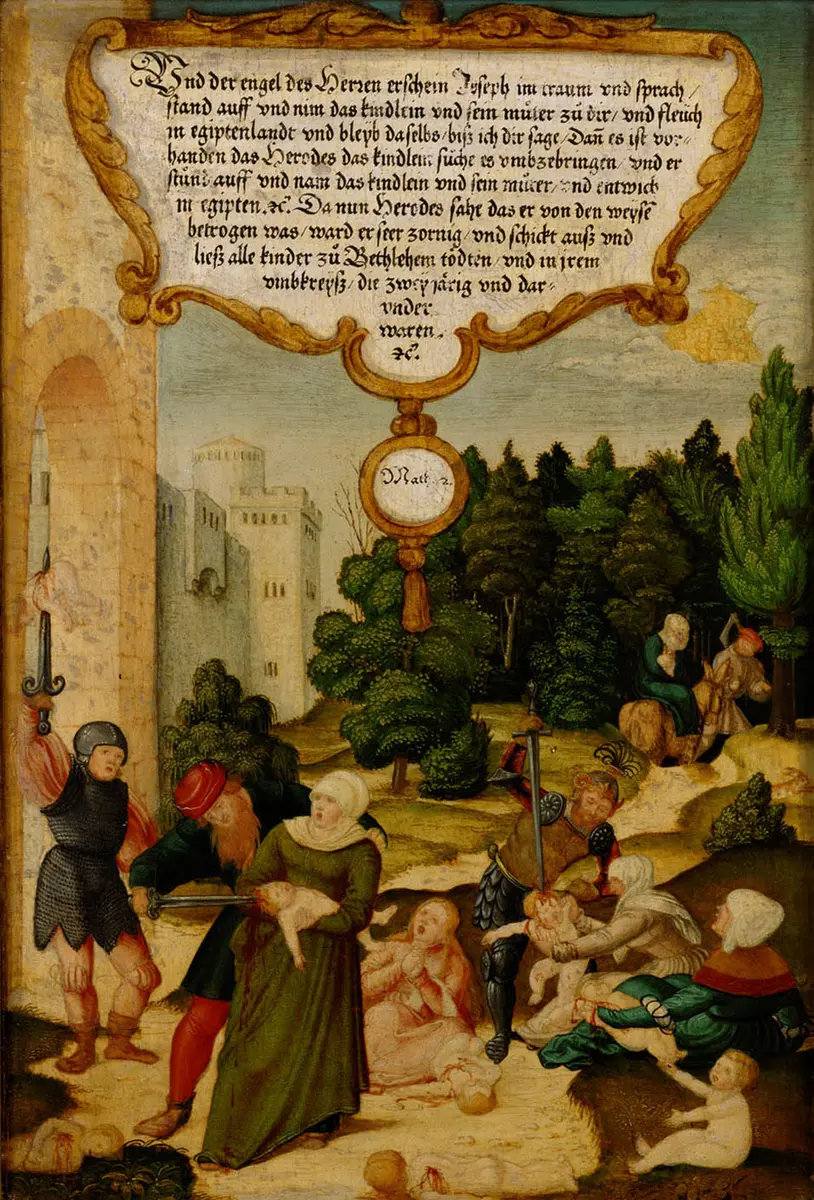 Vnd der engel des Herren erschein Joseph im traum vnd sprach /
stand auff vnd nim das kindlein vnd sein můter zů dir / vnd fleuch
in egiptenlandt vnd bleyb daselbs / biß ich dir sage / Dañ es ist vor-
handen das Herodes das kindlein sůche es vmbzebringen / vnd er
stůnd auff vnd nam das kindlein vnd sein můter / vnd entwich
in egipten. ꝛc. Da nun Herodes sahe das er von den weysẽ
betrogen was / ward er seer zornig / vnd schickt auß vnd
ließ alle kinder zů Bethlehem tödten / vnd in jrem
vmbkreyß / die zwey järig vnd dar-
vnder
waren.
ꝛc.
Math. 2.